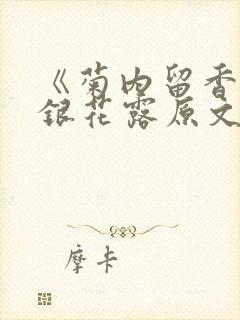 《菊内留香
银花露原文
摩卡